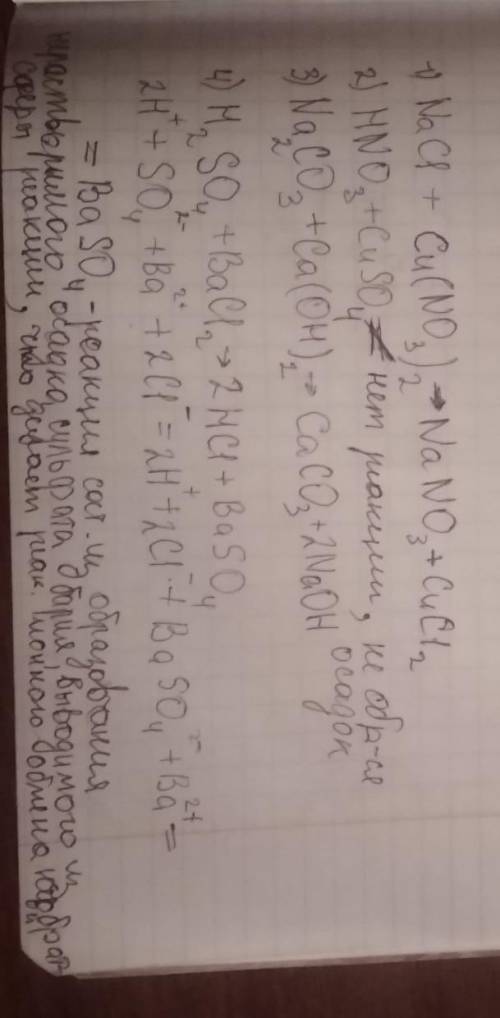 1) NaCl + Cu(NO₃)₂ → NaNO₃ + CuCl₂
2) HNO₃ + CuSO₄ ≠ нет реакции, не обр-ся
осадок
3) Na₂CO₃ + Ca(OH)₂ → CaCO₃ + 2NaOH
4) H₂SO₄ + BaCl₂ → 2HCl + BaSO₄
2H⁺ + SO₄²⁻ + Ba²⁺ + 2Cl⁻ = 2H⁺ + 2Cl⁻ + BaSO₄²⁻ + Ba²⁺ =
= BaSO₄ - реакция сост. из образования
нерастворимого осадка сульфата бария, выводимого из
сферы реакции, что делает реак. ионного обмена